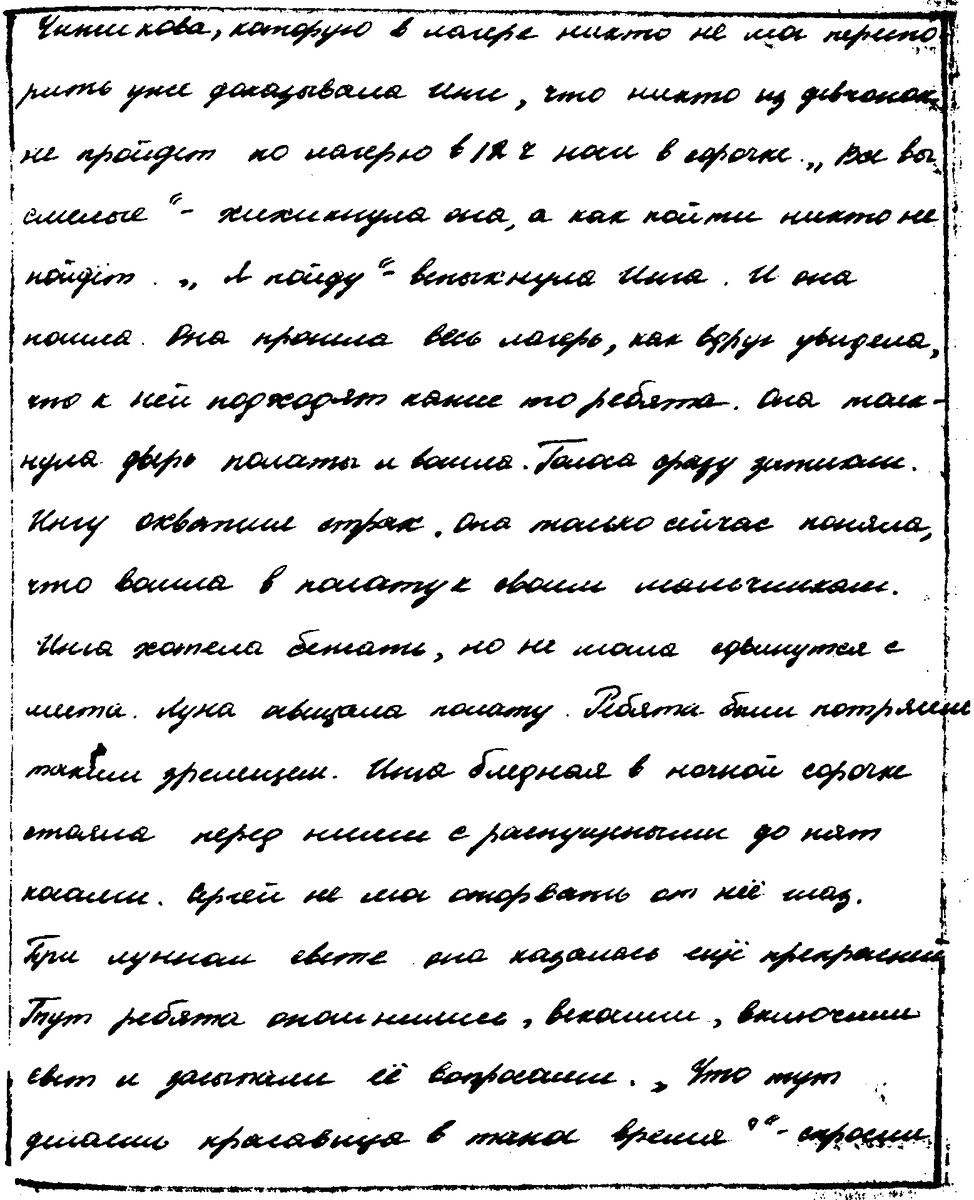 Чижикова, которую в лагере никто не мог переспо-
рить уже доказывала Инге, что никто из девчонок
не пройдет по лагерю в 12 ч ночи в сорочке. „Все вы
смелые“ - хихикнула она, а как пойти никто не
пойдёт. „Я пойду“ - вспыхнула Инга. И она
пошла. Она прошла весь лагерь, как вдруг увидела,
что к ней подходят какие то ребята. Она толк-
нула дверь палаты и вошла. Голоса сразу затихли.
Ингу охватил страх. Она только сейчас поняла,
что вошла в палату к своим мальчишкам.
Инга хотела бежать, но не могла сдвинутся с
места. Луна освещала палату. Ребята были потрясены
таким зрелищем. Инга бледная в ночной сорочке
стояла перед ними с распущенными до пят
косами. Сергей не мог оторвать от неё глаз.
При лунном свете она казалась ещё прекрасней
Тут ребята опомнились, вскочили, включили
свет и засыпали её вопросами. „Что тут
делаешь красавица в такое время?“ - спросил